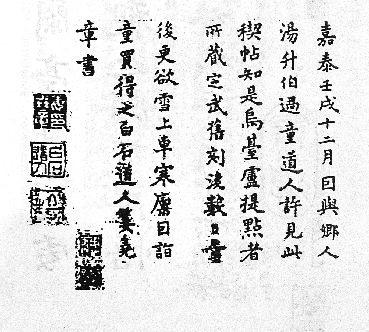 嘉泰壬戌十二月因與鄉人
湯升伯過童道人許見此
稧帖知是烏臺盧提點者
所藏定武舊刻後數日
後更欲雪上車寒詣
童買得之白石道人姜堯
章書